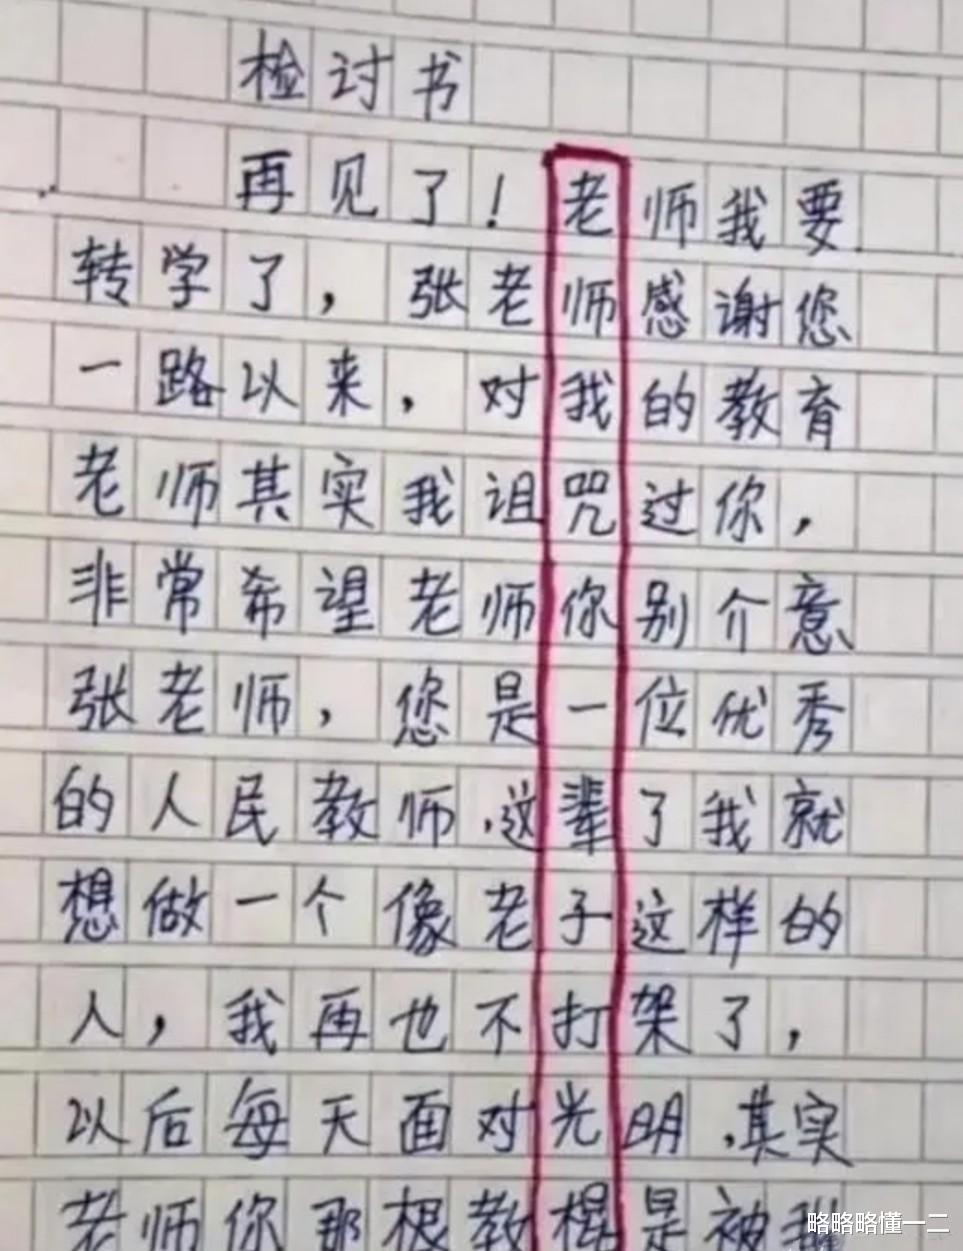 检讨书
再见了！老师我要
转学了，张老师感谢您
一路以来，对我的教育
老师其实我诅咒过你，
非常希望老师你别介意
张老师，您是一位优秀
的人民教师，这辈了我就
想做一个像老子这样的
人，我再也不打架了，
以后每天面对光明，其实
老师你那根教棍是被我
略略略懂一二